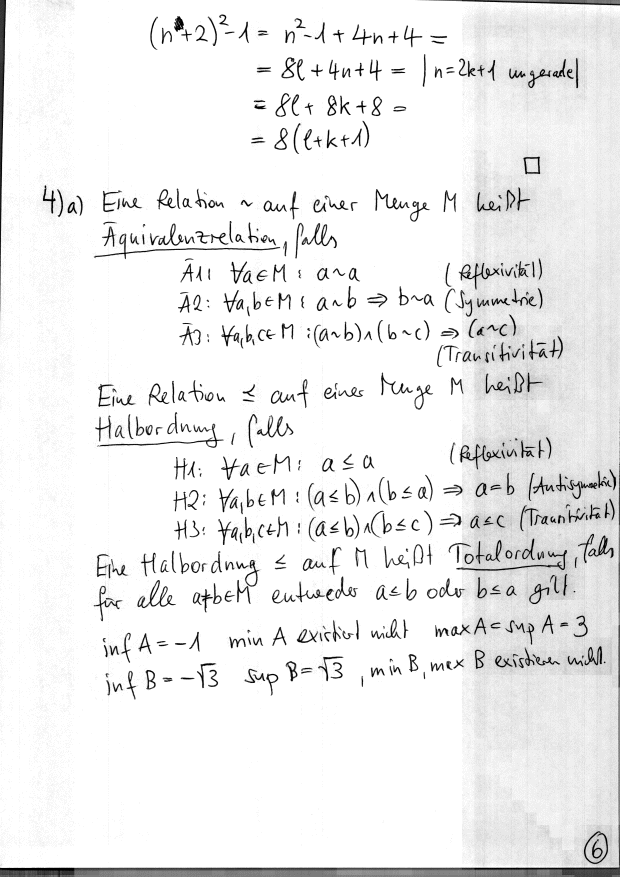 (n+2)²-1 = n²-1+4n+4 =
= 8l+4n+4 = |n=2k+1 ungerade|
= 8l+8k+8 =
= 8(l+k+1)
□
4)a) Eine Relation ~ auf einer Menge M heißt
Äquivalenzrelation, falls
Ä1: ∀a∈M: a~a (Reflexivität)
Ä2: ∀a,b∈M: a~b ⇒ b~a (Symmetrie)
Ä3: ∀a,b,c∈M: (a~b)∧(b~c) ⇒ (a~c)
(Transitivität)
Eine Relation ≤ auf einer Menge M heißt
Halbordnung, falls
H1: ∀a∈M: a≤a (Reflexivität)
H2: ∀a,b∈M: (a≤b)∧(b≤a) ⇒ a=b (Antisymmetrie)
H3: ∀a,b,c∈M: (a≤b)∧(b≤c) ⇒ a≤c (Transitivität)
Eine Halbordnung ≤ auf M heißt Totalordnung, falls
für alle a≠b∈M entweder a≤b oder b≤a gilt.
inf A = -1 min A existiert nicht max A = sup A = 3
inf B = -√3 sup B = √3, min B, max B existieren nicht.
6